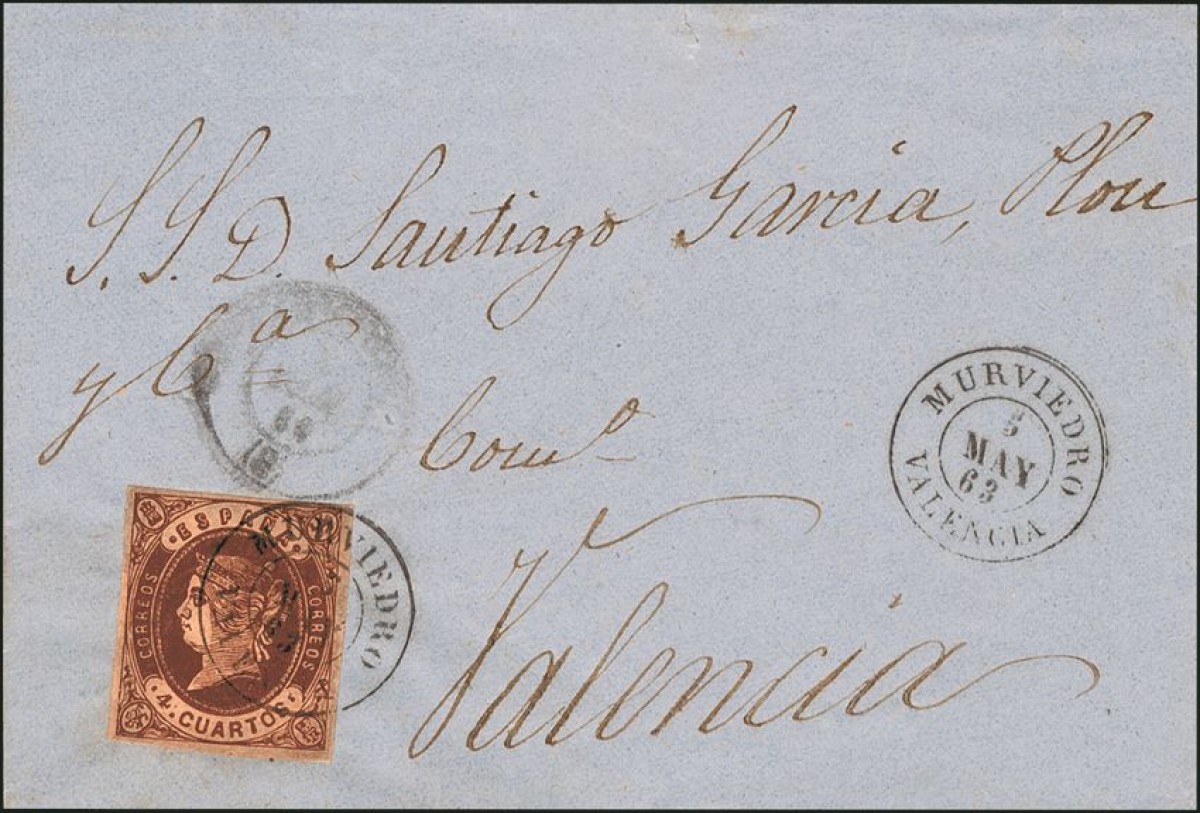 S. S. D. Santiago Garcia, Plou
y Cª
Comº
Valencia
MURVIEDRO
5
MAY
63
VALENCIA
ESPAÑA
CORREOS
CORREOS
4. CUARTOS
MURVIEDRO